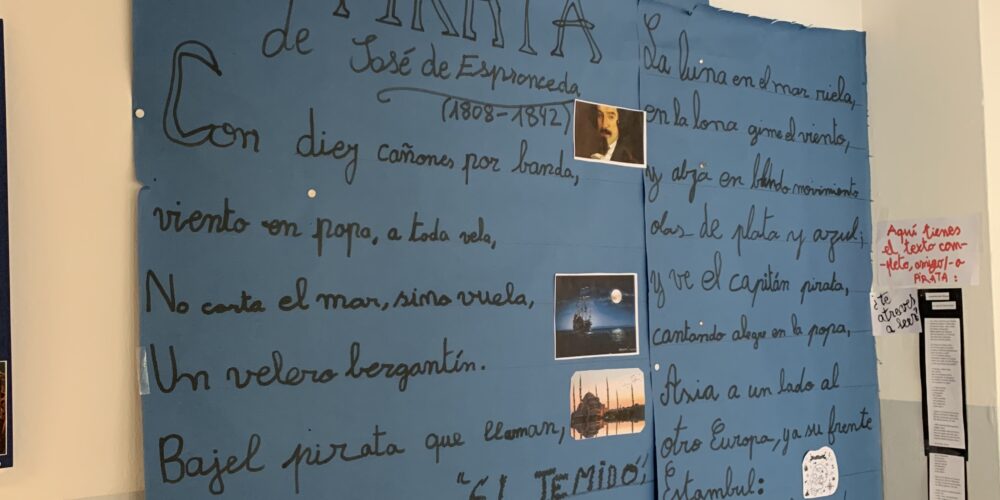 PIRATA
de
José de Espronceda
(1808-1842)
Con diez cañones por banda,
viento en popa, a toda vela,
No corta el mar, sino vuela,
Un velero bergantín.
Bajel pirata que llaman,
"EL TEMIDO",
La luna en el mar riela,
en la lona gime el viento,
y alza en blando movimiento
olas de plata y azul;
y ve el capitán pirata,
cantando alegre en la popa,
Asia a un lado al
otro Europa, y a su frente
Estambul:
Aquí tienes
el texto com-
-pleto, amigo/-a
PIRATA:
¿te
atreves
a leer?